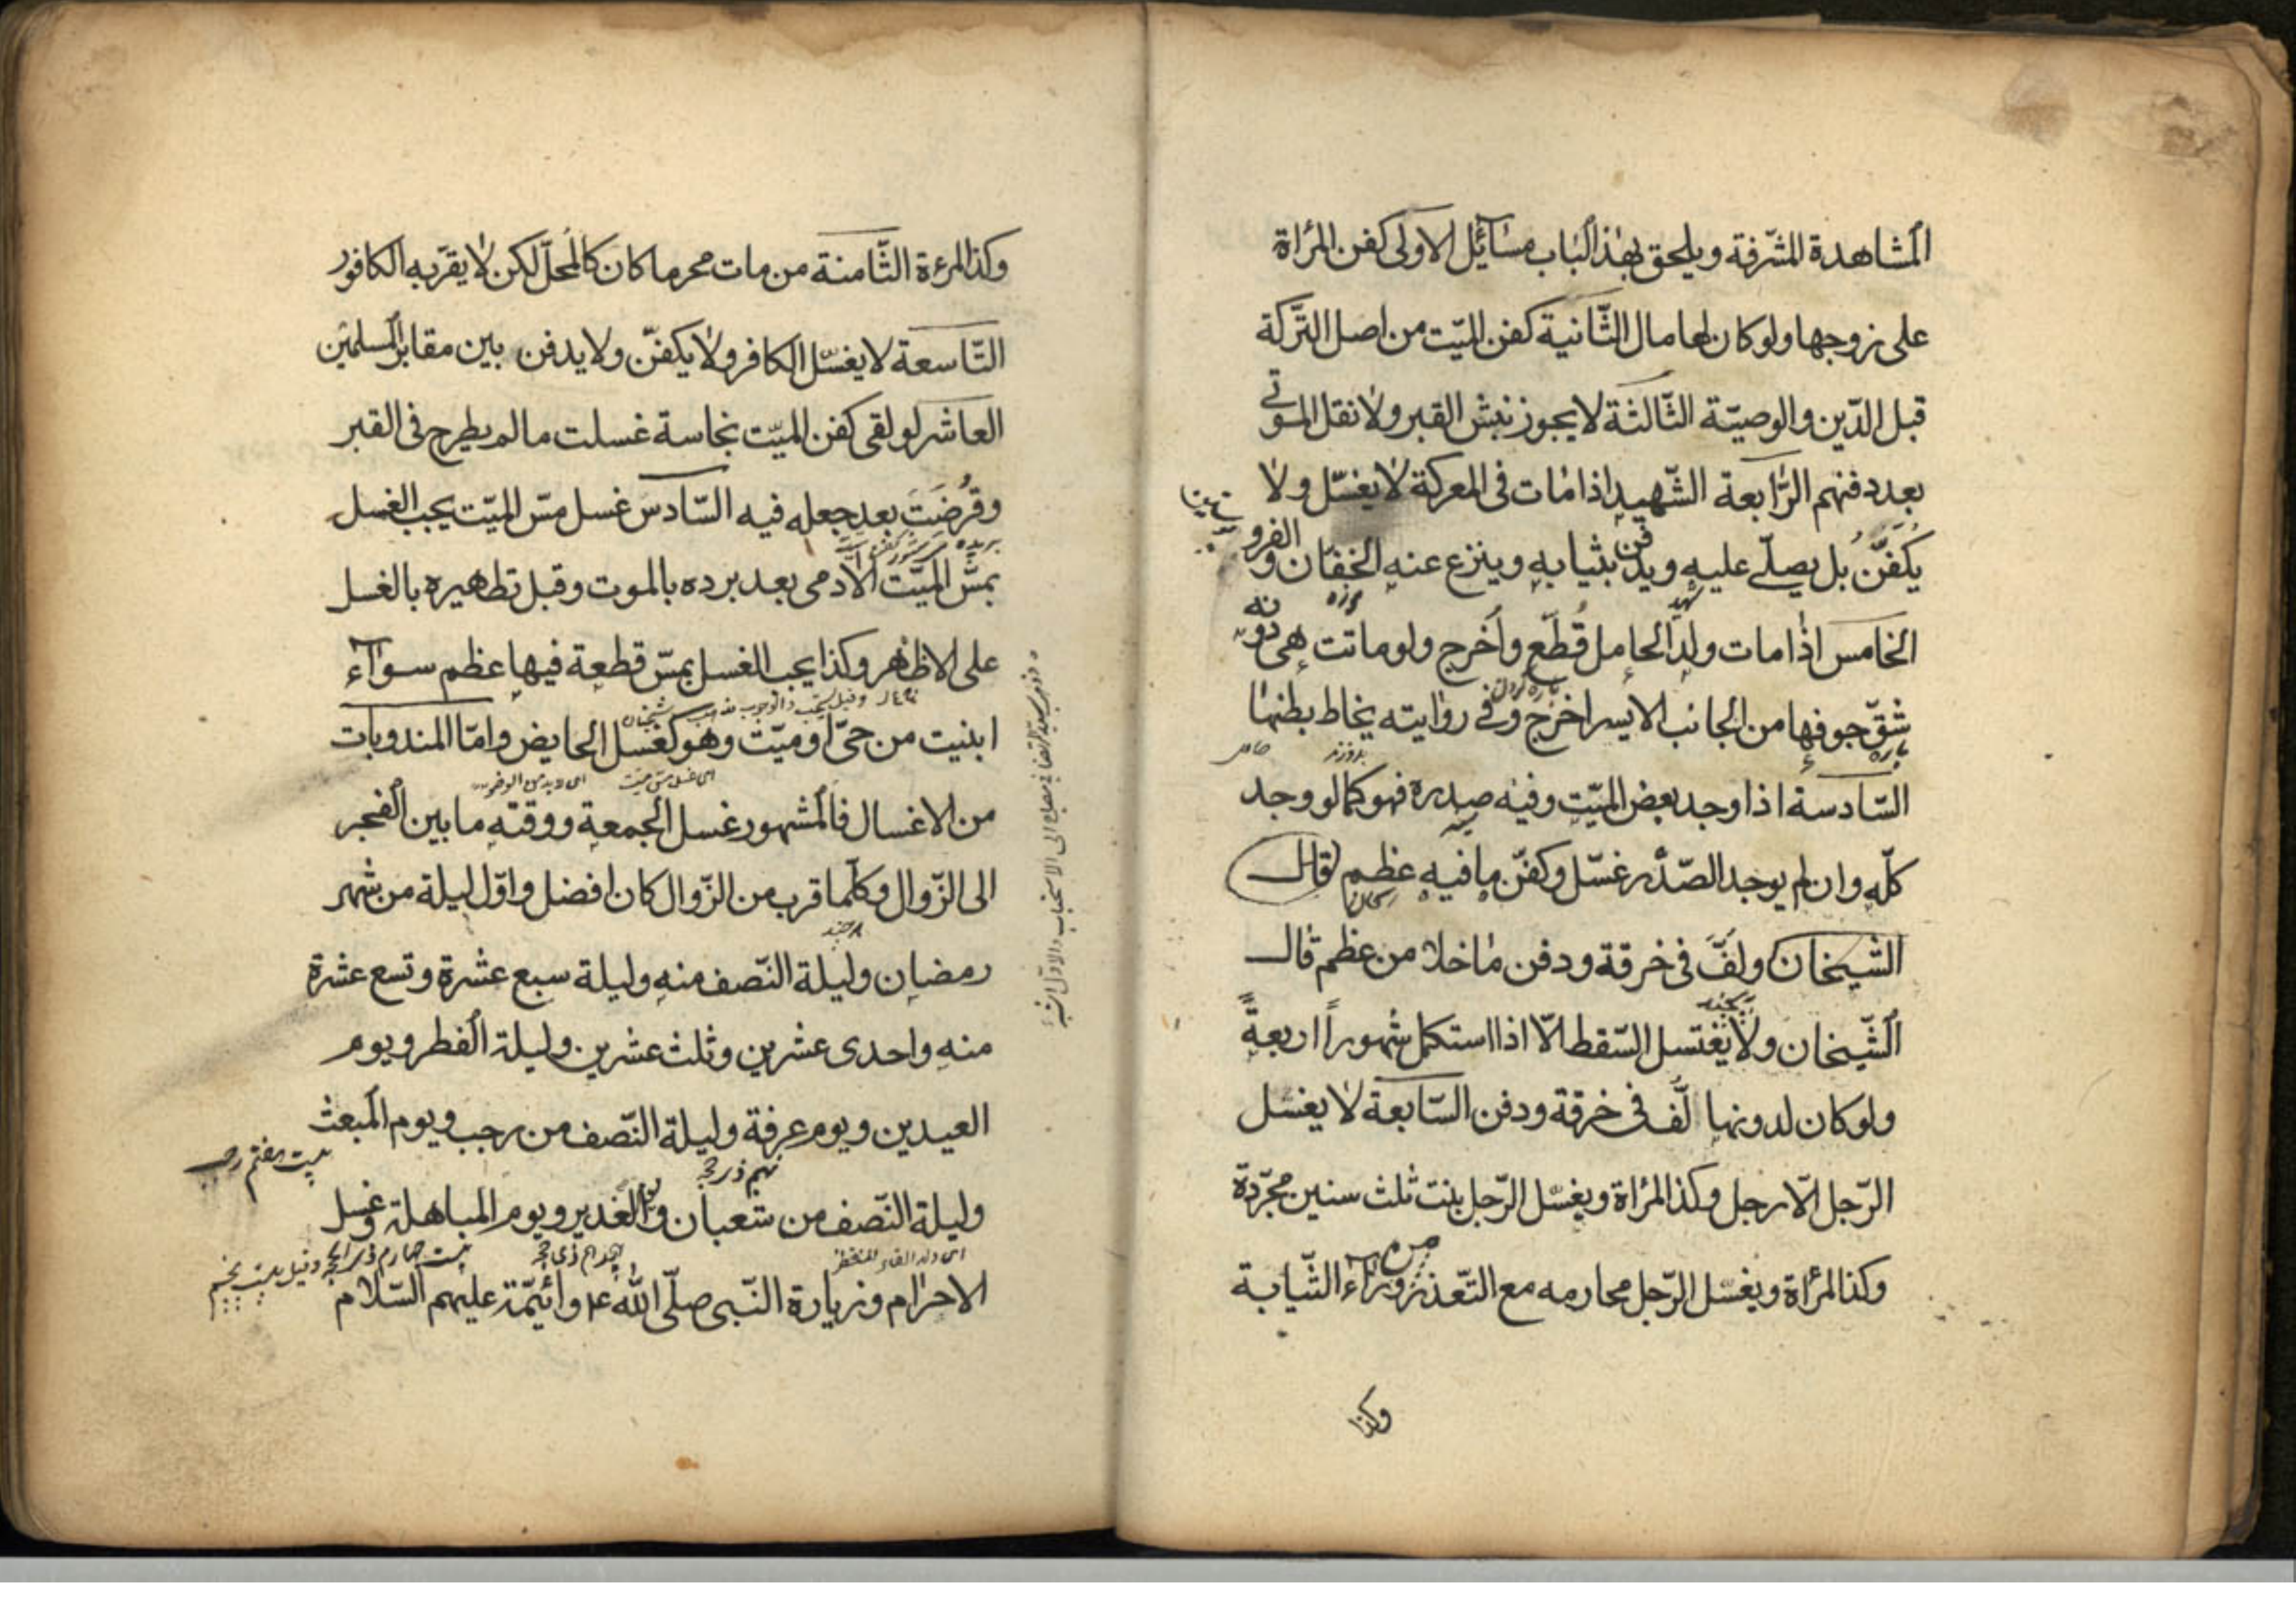 المشاهدة المشرّفة ويلحق بهذا الباب مسآئل الاولى كفن المرأة
على زوجها ولو كان لها مال الثّانية كفن الميّت من اصل التّركة
قبل الدّين والوصيّة الثّالثة لا يجوز نبش القبر ولا نقل الموتى
بعد دفنهم الرّابعة الشّهيد اذا مات فى المعركة لا يغسّل ولا
يُكَفَّنُ بل يصلّى عليه ويدفن بثيابه وينزع عنه الخفّان والفرو
الخامس اذا مات ولد الحامل قُطّع وأخرج ولو ماتت هى دونه
شقّ جوفها من الجانب الايسر اخرج وفى رواية يخاط بطنها
السّادسة اذا وجد بعض الميّت وفيه صدره فهو كما لو وجد
كلّه وان لم يوجد الصّدر غسّل وكفّن ما فيه عظم قال
الشّيخان ولَفَّ فى خرقة ودفن ما خلا من عظم قال
الشّيخان ولا يغتسل السّقط الّا اذا استكمل شهوراً اربعةً
ولو كان لدونها لُفّ فى خرقة ودفن السّابعة لا يغسّل
الرّجل الّا رجل وكذا المرأة ويغسّل الرّجل بنت ثلث سنين مجرّدة
وكذا المرأة ويغسّل الرّجل محارمه مع التّعذر من ورآء الثّيابة
وكذا
وكذا المرءة الثّامنة من مات محرما كان كالمُحلّ لكن لا يقرّبه الكافور
التّاسعة لا يغسّل الكافر ولا يكفّن ولا يدفن بين مقابر المسلمين
العاشر لو لقى كفن الميّت نجاسة غسلت ما لم يطرح فى القبر
وقُرضَتَ بعد جعله فيه السّادس غسل مسّ الميّت يجب الغسل
بريده
بمسّ الميّت الآدمى بعد برده بالموت وقبل تطهيره بالغسل
على الاظهر وكذا يجب الغسل بمسّ قطعة فيها عظم سوآء
ابنيت من حىّ او ميّت وهو كغسل الحايض وامّا المندوبات
اى غسل مس ميت
من الاغسال فالمشهور غسل الجمعة ووقته ما بين الفجر
الى الزّوال وكلّما قرب من الزّوال كان افضل واوّل ليلة من شهر
رمضان وليلة النّصف منه وليلة سبع عشرة وتسع عشرة
منه واحدى عشرين وثلث عشرين وليلة الفطر ويوم
العيدين ويوم عرفة وليلة النّصف من رجب ويوم المبعث
بيست هفتم رجب
وليلة النّصف من شعبان والغدير ويوم المباهلة وغسل
الاحرام وزيارة النّبى صلّى اللّه عم وائيمّة عليهم السّلام